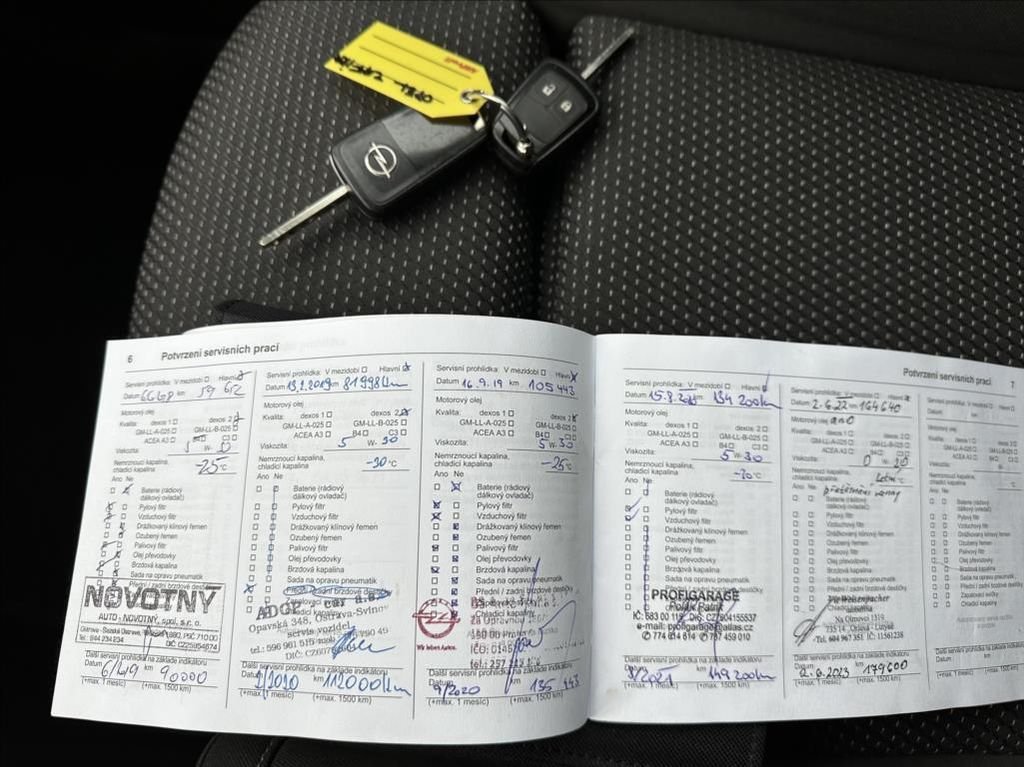 OPEL ZAFIRA
6
Potvrzení servisních prací
Servisní prohlídka: V mezidobí Hlavní
Datum km
Motorový olej
Kvalita: dexos 1 dexos 2
GM-LL-A-025 GM-LL-B-025
ACEA A3 B4 C3
Viskozita: 5 W- 30
Nemrznoucí kapalina,
chladicí kapalina -25 °C
Ano Ne
Baterie (rádiový
dálkový ovladač)
Pylový filtr
Vzduchový filtr
Drážkovaný klínový řemen
Ozubený řemen
Palivový filtr
Olej převodovky
Brzdová kapalina
Sada na opravu pneumatik
Přední / zadní brzdové destičky
NOVOTNÝ
AUTO - NOVOTNÝ, spol. s r. o.
Další servisní prohlídka na základě indikátoru
Datum 6/2019 km 90000
(+max. 1 měsíc) (+max. 1500 km)
Servisní prohlídka: V mezidobí Hlavní
Datum 13.2.2019 km 81998 km
Motorový olej
Kvalita: dexos 1 dexos 2
GM-LL-A-025 GM-LL-B-025
ACEA A3 B4 C3
Viskozita: 5 W- 30
Nemrznoucí kapalina,
chladicí kapalina -30 °C
Ano Ne
Baterie (rádiový
dálkový ovladač)
Pylový filtr
Vzduchový filtr
Drážkovaný klínový řemen
Ozubený řemen
Palivový filtr
Olej převodovky
Brzdová kapalina
Sada na opravu pneumatik
Přední / zadní brzdové destičky
Opavská 348, Ostrava-Svinov
servis vozidel
Další servisní prohlídka na základě indikátoru
Datum 2/2020 km 112000 km
(+max. 1 měsíc) (+max. 1500 km)
Servisní prohlídka: V mezidobí Hlavní
Datum 16.9.19 km 105 443
Motorový olej
Kvalita: dexos 1 dexos 2
GM-LL-A-025 GM-LL-B-025
ACEA A3 B4 C3
Viskozita: 5 W- 30
Nemrznoucí kapalina,
chladicí kapalina -25 °C
Ano Ne
Baterie (rádiový
dálkový ovladač)
Pylový filtr
Vzduchový filtr
Drážkovaný klínový řemen
Ozubený řemen
Palivový filtr
Olej převodovky
Brzdová kapalina
Sada na opravu pneumatik
Přední / zadní brzdové destičky
Chladicí kapalina
Wir leben Autos.
Další servisní prohlídka na základě indikátoru
Datum 9/2020 km 135 443
(+max. 1 měsíc) (+max. 1500 km)
Potvrzení servisních prací
7
Servisní prohlídka: V mezidobí Hlavní
Datum km 134 200km
Motorový olej
Kvalita: dexos 1 dexos 2
GM-LL-A-025 GM-LL-B-025
ACEA A3 B4 C3
Viskozita: 5 W 30
Nemrznoucí kapalina,
chladicí kapalina °C
Ano Ne
Baterie (rádiový
dálkový ovladač)
Pylový filtr
Vzduchový filtr
Drážkovaný klínový řemen
Ozubený řemen
Palivový filtr
Olej převodovky
Brzdová kapalina
Sada na opravu pneumatik
Přední / zadní brzdové destičky
PROFIGARAGE
Další servisní prohlídka na základě indikátoru
Datum 8/2021 km 149 200km
(+max. 1 měsíc) (+max. 1500 km)
Servisní prohlídka: V mezidobí Hlavní
Datum 2.6.22 km 164640
Motorový olej ano
Kvalita: dexos 1 dexos 2
GM-LL-A-025 GM-LL-B-025
ACEA A3 B4 C3
Viskozita: 0 W- 20
Nemrznoucí kapalina,
chladicí kapalina
Ano Ne
Baterie (rádiový
dálkový ovladač)
Pylový filtr
Vzduchový filtr
Drážkovaný klínový řemen
Ozubený řemen
Palivový filtr
Olej převodovky
Brzdová kapalina
Sada na opravu pneumatik
Přední / zadní brzdové destičky
Chladicí kapalina
Na Olmovci 1319
Tel. 604 967 351 IČ: 11561238
Další servisní prohlídka na základě indikátoru
Datum 2.6.2023 km 179600
(+max. 1 měsíc) (+max. 1500 km)
Servisní prohlídka:
Datum
Motorový olej
Kvalita: dexos 1
GM-LL-A-025
ACEA A3
Viskozita:
Nemrznoucí kapalina,
chladicí kapalina
Ano Ne
Baterie (rádiový
dálkový ovladač)
Pylový filtr
Vzduchový filtr
Drážkovaný klínový
Ozubený řemen
Palivový filtr
Olej převodovky
Brzdová kapalina
Sada na opravu
Přední / zadní
Chladicí kapalina
Další servisní prohlídka
Datum
(+max. 1 měsíc)